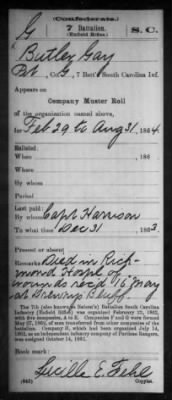 (Confederate.)
G 7 Battalion. S. C.
(Enfield Rifles)
Butler Gay
Pvt, Co. G, 7 Batt'n South Carolina Inf.
Appears on
Company Muster Roll
of the organization named above,
for Feb 29 to Aug 31, 1864.
Enlisted:
When , 186
Where
By whom
Period
Last paid:
By whom Capt Harrison
To what time Dec 31, 1863.
Present or absent
Remarks: Died in Rich-
mond Hospt of
wounds rec'd 16" May
at Drewrys Bluff.
The 7th (also known as Nelson's) Battalion South Carolina
Infantry (Enfield Rifles) was organized February 22, 1862,
with five companies, A to E. Companies F and G were formed
May 27, 1862, of men transferred from other companies of the
battalion. Company H, which had been organized July 14,
1862, as an independent company of Partisan Rangers, was
assigned October 14, 1862.
Book mark:
Lucille E. Fehl
(642) Copyist.